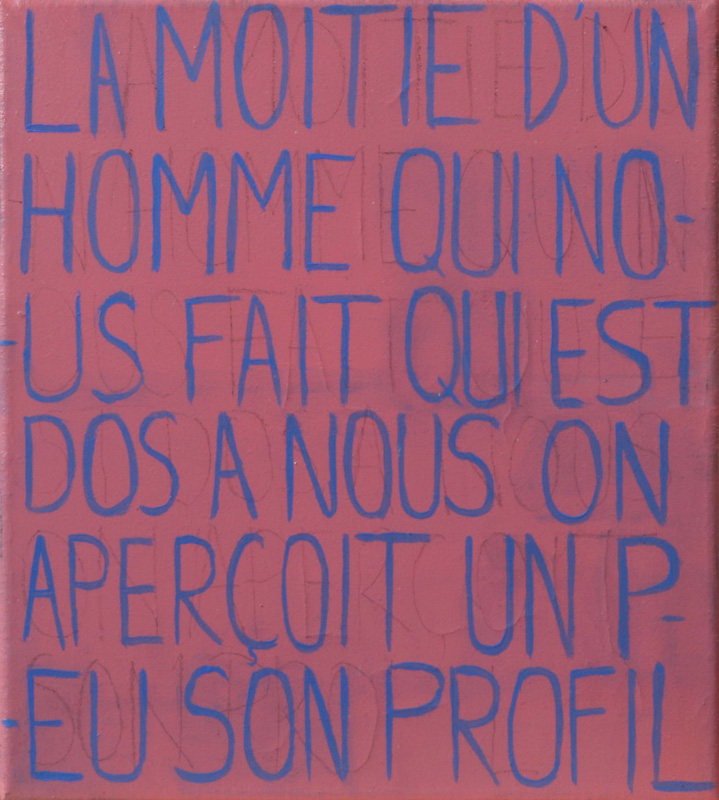 LA MOITIE D'UN
HOMME QUI NO-
-US FAIT QUI EST
DOS A NOUS ON
APERÇOIT UN P-
-EU SON PROFIL